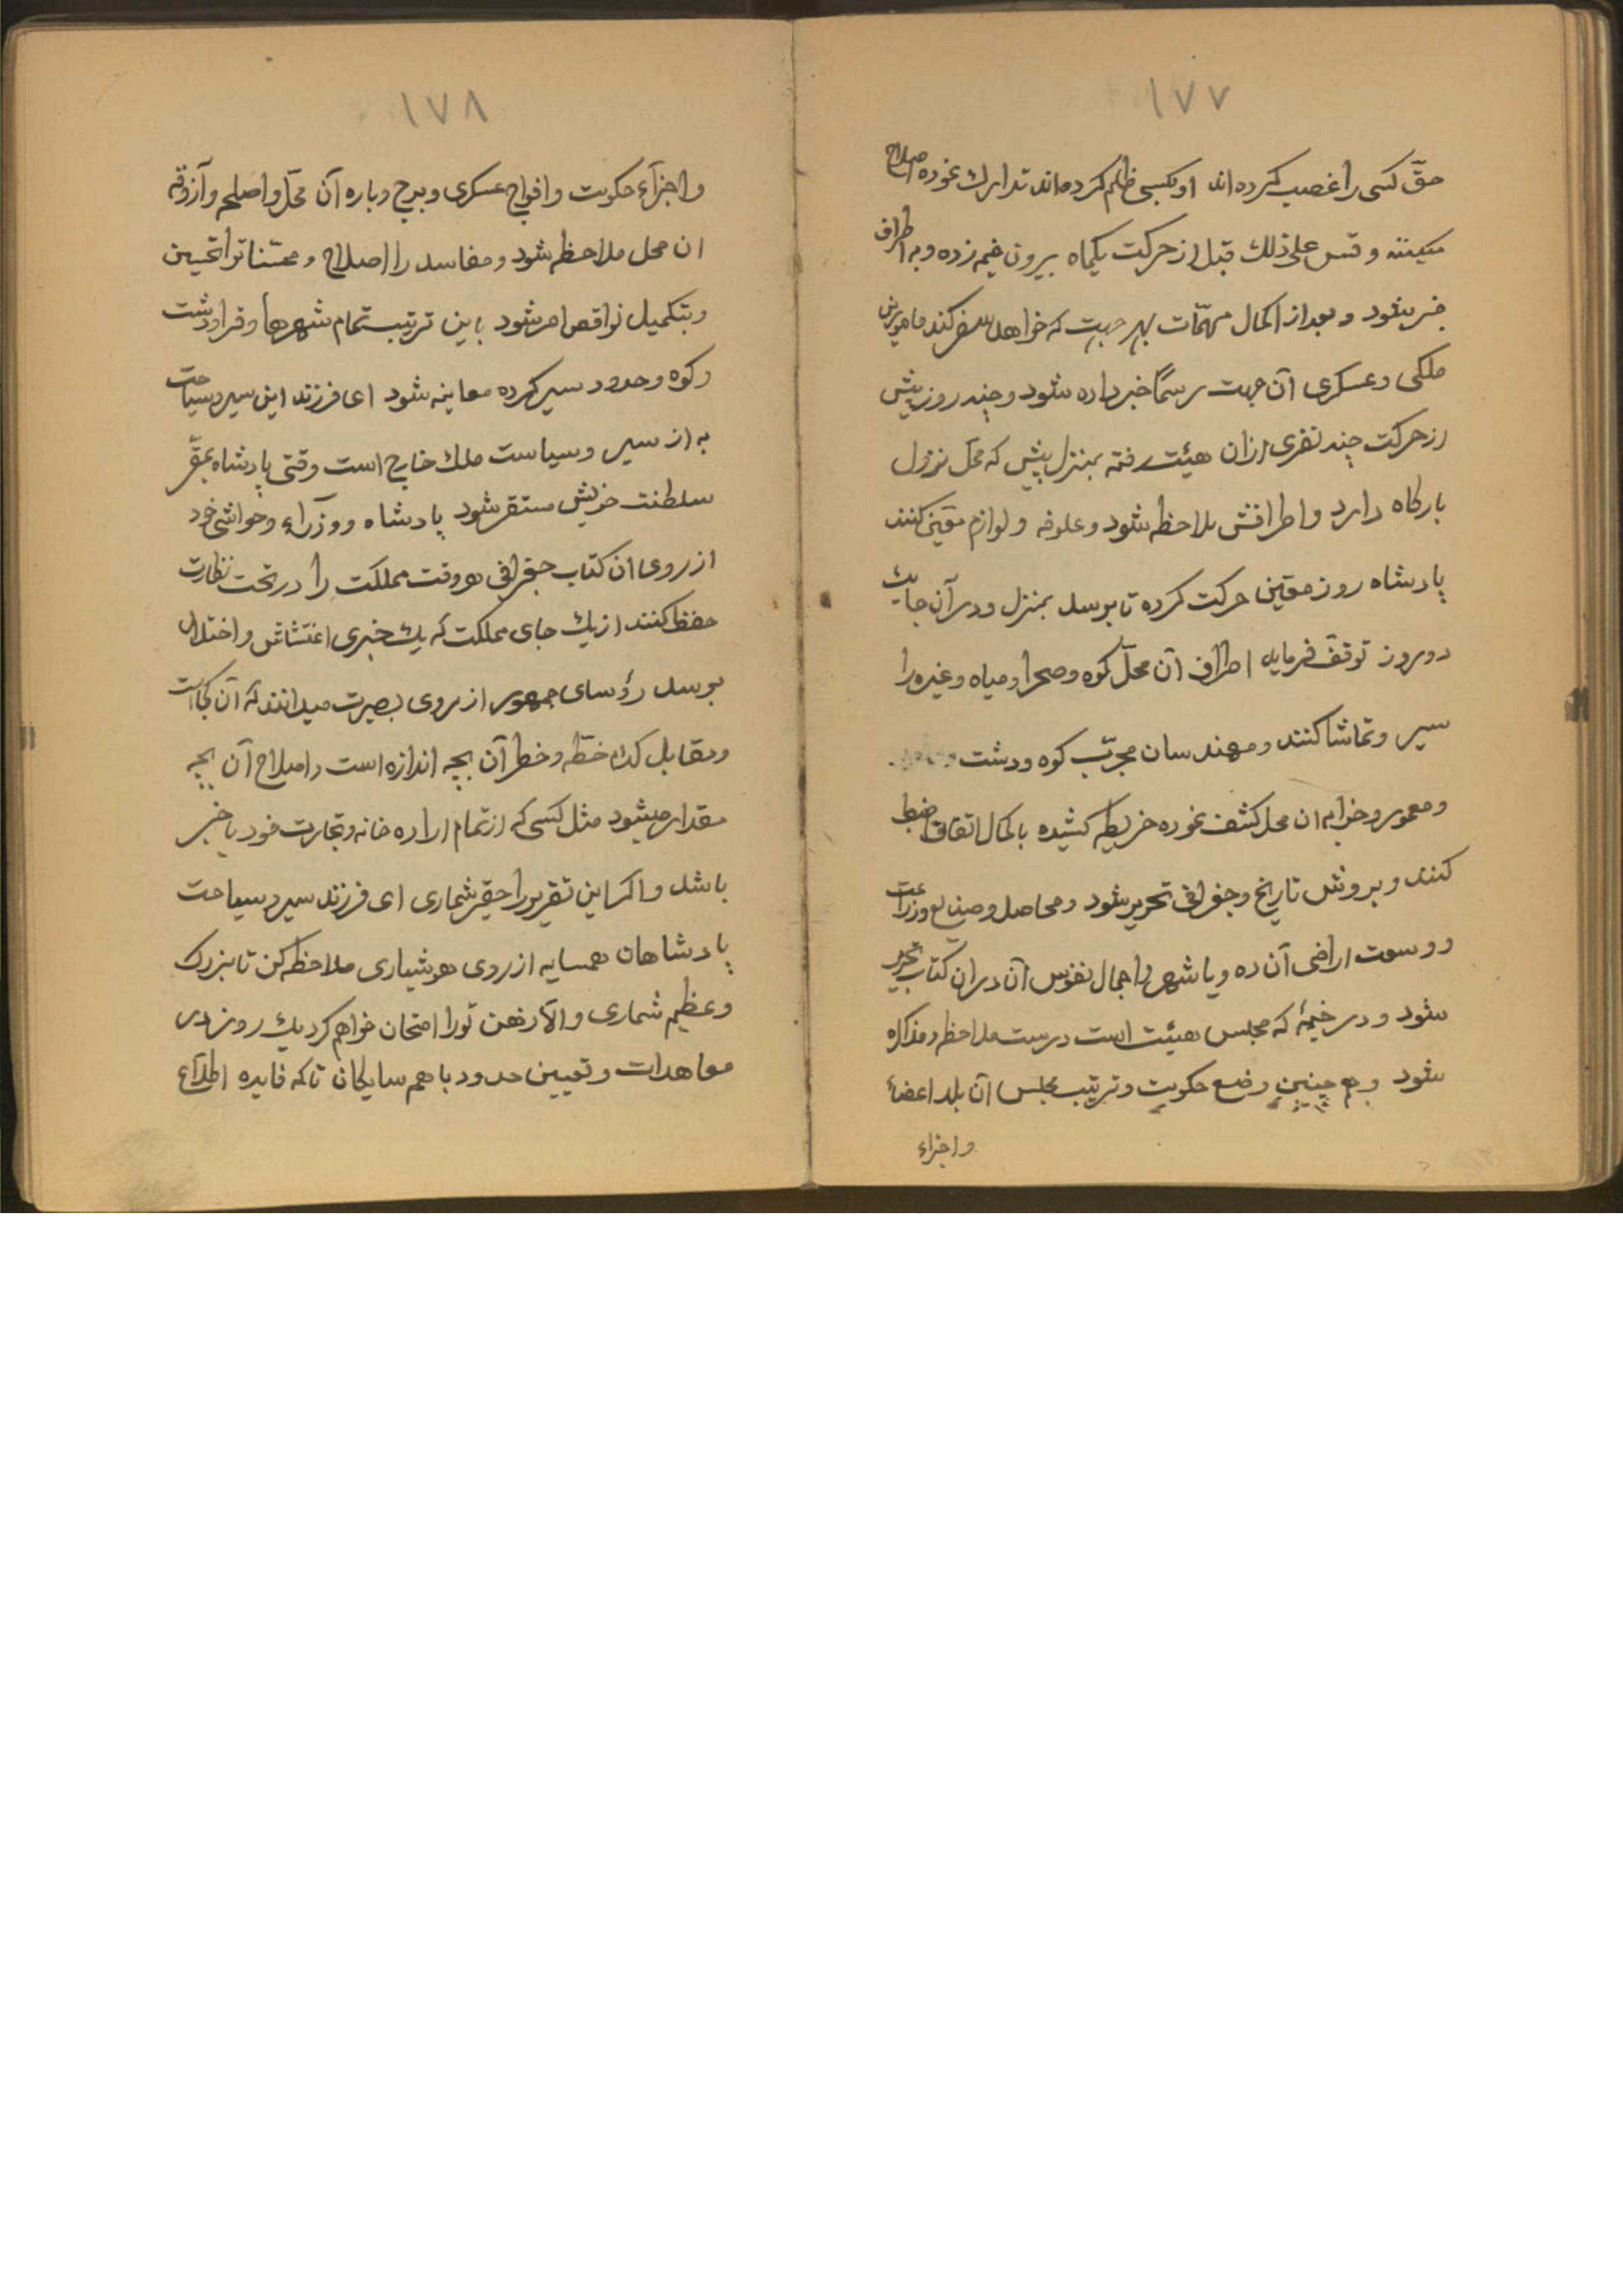 ١٧٧
حقّ کسی را غصب کرده‌اند او بکسی ظلم کرده‌اند تدارك نموده اصلاح
میکنند و قس علی ذلك قبل از حرکت یکماه بیرون خیمه زده و به اطراف
خبر بشود و بعد از اکمال مهمّات بهر جهت که خواهد سفر کند مامورین
ملکی و عسکری آن جهت رسمًا خبر داده شود و چند روز پیش
از حرکت چند نفری ازان هیئت رفته بمنزل پیش که محل نزول
بارکاه دارد و اطرافش ملاحظه شود و علوفه و لوازم معّین کنند
پادشاه روز معّین حرکت کرده تا برسد بمنزل و در آن جا یك
دو روز توقّف فرماید اطراف آن محلّ کوه و صحرا و میاه و غیره را
سیر و تماشا کنند و مهندسان مجرّب کوه و دشت
و معمور و خرابه ان محل کشف نموده خریطه کشیده با کمال اتفاق ضبط
کنند و بروش تاریخ و جغرافی تحریر شود و محاصل و صنایع وزراعت
و وسعت اراضی آن ده و یا شهر و اجمال نفوس آن دران کتاب تحریر
شود و در خیمهٔ که مجلس هیئت است درست ملاحظه و مذاکره
شود و هم چنین وضع حکومت و ترتیب مجلس آن بلد اعضاء
و اجزاء
١٧٨
و اجزآء حکومت و افواج عسکری و برج و باره آن محلّ و اصلحه و آزوقه
ان محل ملاحظه شود و مفاسد را اصلاح و محسّنات را تحسین
و بتکمیل نواقص امر شود باین ترتیب تمام شهرها و قرا و دشت
و کوه و حدود سیر کرده معاینه شود ای فرزند این سیر و سیاحت
به از سیر و سیاست ملك خارج است وقتی پادشاه بمقّر
سلطنت خویش مستقر شود پادشاه و وزرآء و حواشی خود
از روی ان کتاب جغرافی هر وقت مملکت را در تحت نظارت
حفظ کنند از یك جای مملکت که یك خبری اغتشاش و اختلال
برسد رؤسای جمهور از روی بصیرت میدانند که آن کجا است
و مقابل کدام خطّه و خطر آن بچه اندازه است و اصلاح آن بچه
مقدار میشود مثل کسی که از تمام اداره خانه و تجارت خود باخبر
باشد و اکر این تقریر را حقیر شماری ای فرزند سیر و سیاحت
پادشاهان همسایه از روی هوشیاری ملاحظه کن تا بزرك
و عظیم شماری و الّا ذهن تورا امتحان خواهم کرد یك روز در
معاهدات و تعیین حدود با هم سایکان تا که فایده اطلاع